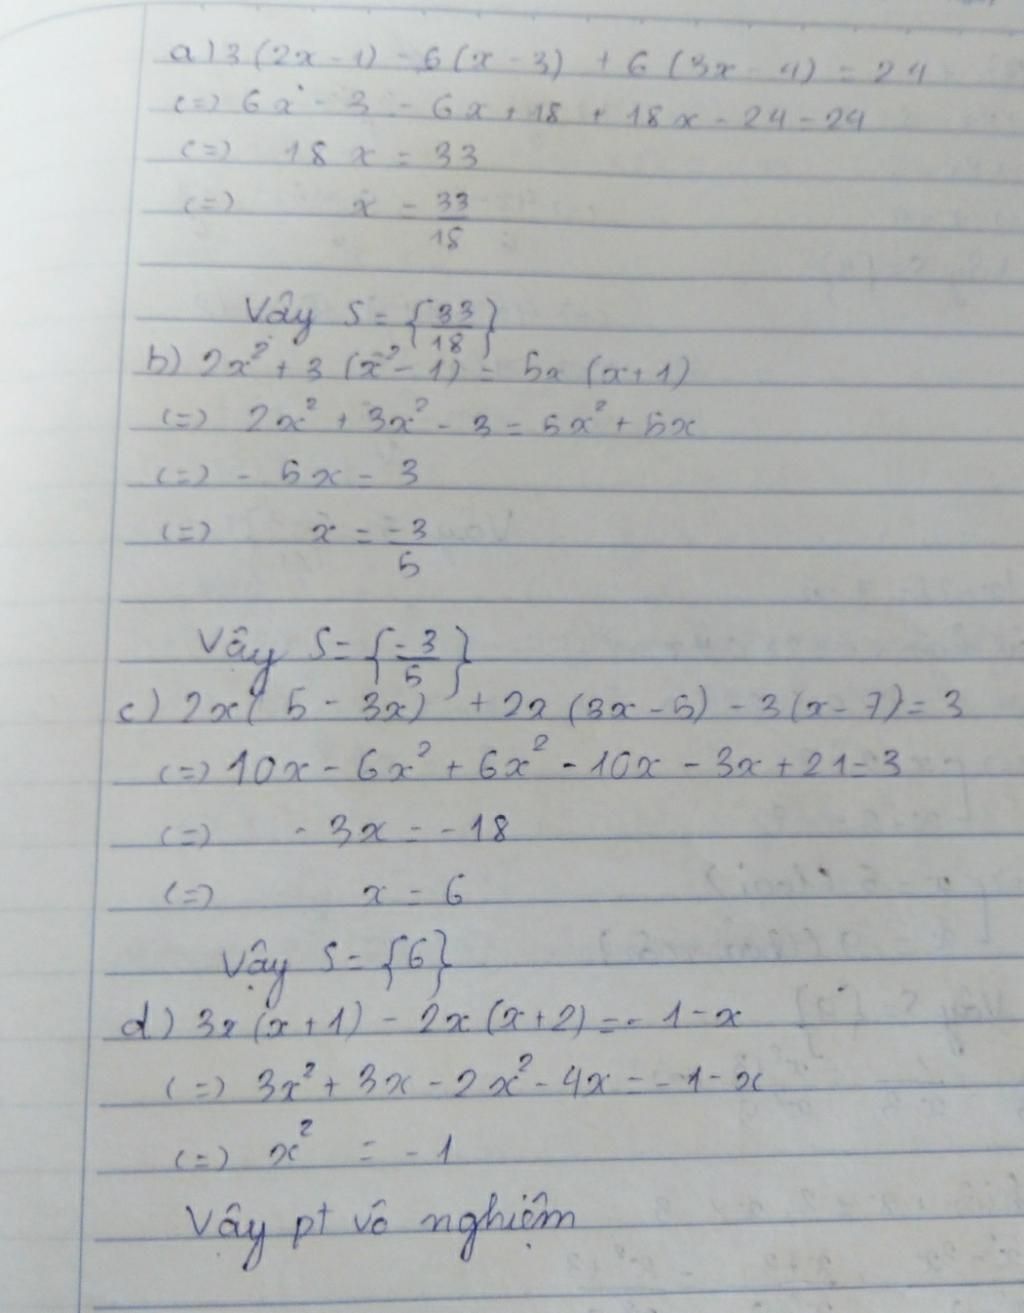 a) 3(2x - 1) - 6(x - 3) + 6(3x - 4) = 24
(=) 6x - 3 - 6x + 18 + 18x - 24 = 24
(=) 18x = 33
(=) x = 33/18
Vây S = {33/18}
b) 2x² + 3(x² - 1) = 5x(x + 1)
(=) 2x² + 3x² - 3 = 5x² + 5x
(=) - 5x = 3
(=) x = -3/5
Vậy S = {-3/5}
c) 2x(5 - 3x) + 2x(3x - 5) - 3(x - 7) = 3
(=) 10x - 6x² + 6x² - 10x - 3x + 21 = 3
(=) - 3x = - 18
(=) x = 6
Vậy S = {6}
d) 3x(x + 1) - 2x(x + 2) = - 1 - x
(=) 3x² + 3x - 2x² - 4x = - 1 - x
(=) x² = - 1
Vây pt vô nghiệm